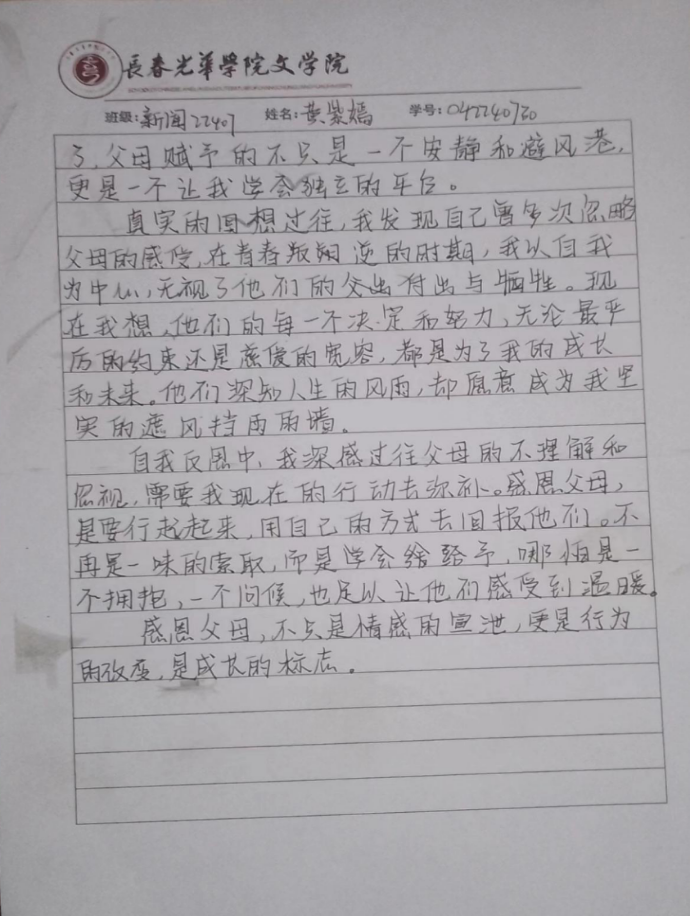 長春光華學院文学院
班级：新闻22407 姓名：黄紫嫣 学号：042240720
了，父母赋予的不只是一个安静和避风港，
更是一个让我学会独立的平台。
真实的回想过往，我发现自己曾多次忽略
父母的感受，在青春叛逆的时期，我以自我
为中心，无视了他们的付出与牺牲。现
在我想，他们的每一个决定和努力，无论最严
厉的约束还是慈爱的宽容，都是为了我的成长
和未来。他们深知人生的风雨，却愿意成为我坚
实的遮风挡雨雨墙。
自我反思中，我深感过往父母的不理解和
忽视，需要我现在的行动去弥补。感恩父母，
是要行起来，用自己的方式去回报他们。不
再是一味的索取，而是学会给予，哪怕是一
个拥抱，一个问候，也足以让他们感受到温暖。
感恩父母，不只是情感的宣泄，更是行为
的改变，是成长的标志。